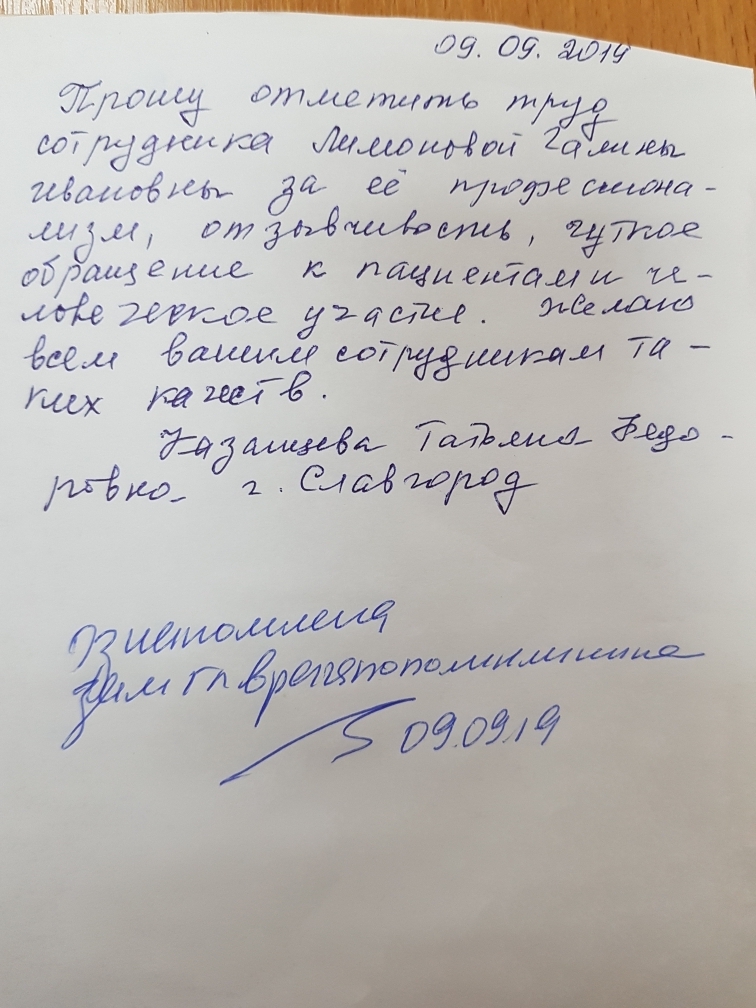 09. 09. 2019
Прошу отметить труд
сотрудника Лимоновой Галины
ивановны за её професиона-
лизм, отзывчивость, чуткое
обращение к пациентам и че-
ловеческое участие. Желаю
всем вашим сотрудникам та-
ких качеств.
Казанцева Татьяна Федо-
ровна г. Славгород
Ознакомлена
Зам гл врача по поликлинике
09.09.19